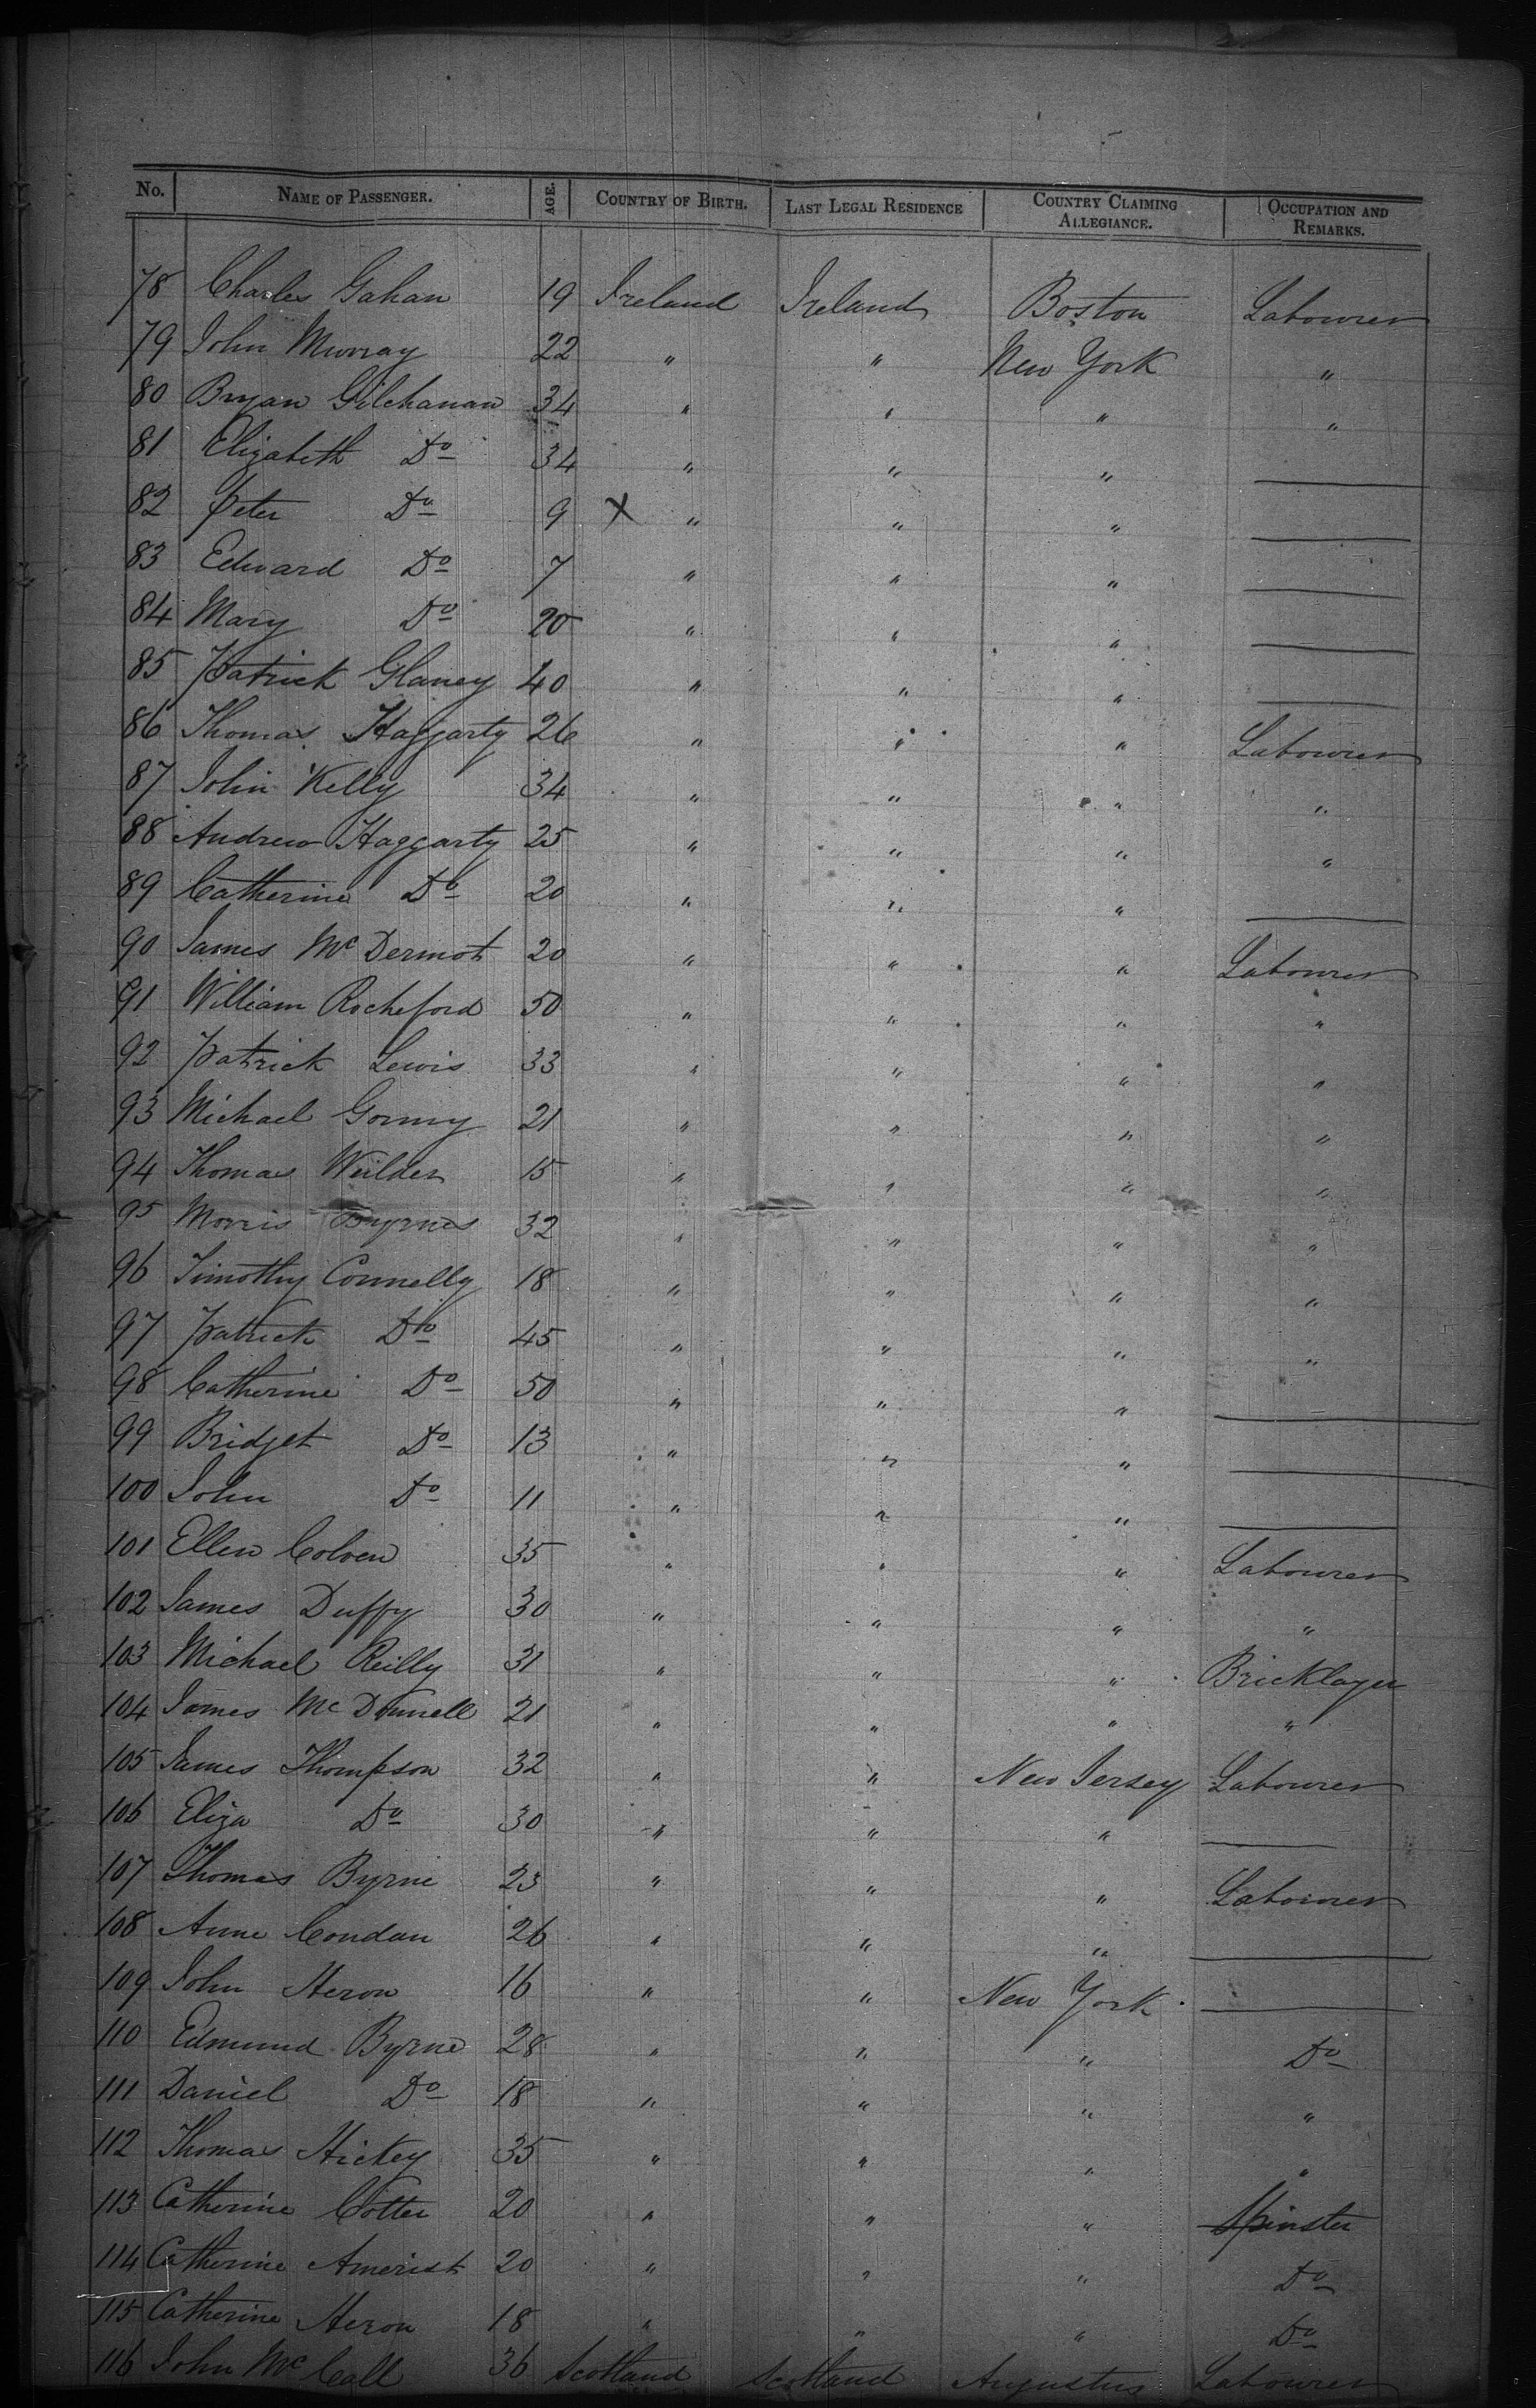 No. NAME OF PASSENGER. AGE. COUNTRY OF BIRTH. LAST LEGAL RESIDENCE COUNTRY CLAIMING ALLEGIANCE. OCCUPATION AND REMARKS.
78 Charles Gahan 19 Ireland Ireland Boston Labourer
79 John Murray 22 " " New York "
80 Bryan Gilchanan 34 " " " "
81 Elizabeth Do 34 " " " —
82 Peter Do 9 X " " " —
83 Edward Do 7 " " " —
84 Mary Do 20 " " " —
85 Patrick Glaney 40 " " " —
86 Thomas Haggarty 26 " " " Labourer
87 John Kelly 34 " " " "
88 Andrew Haggarty 25 " " " "
89 Catherine Do 20 " " " —
90 James McDermot 20 " " " Labourer
91 William Rocheford 50 " " " "
92 Patrick Lewis 33 " " " "
93 Michael Gormy 21 " " " "
94 Thomas Weilder 15 " " " "
95 Morris Byrnes 32 " " " "
96 Timothy Connelly 18 " " " "
97 Patrick Do 45 " " " "
98 Catherine Do 50 " " " —
99 Bridget Do 13 " " " —
100 John Do 11 " " " —
101 Ellen Colven 35 " " " Labourer
102 James Duffy 30 " " " "
103 Michael Reilly 31 " " " Bricklayer
104 James McDonnell 21 " " " "
105 James Thompson 32 " " New Jersey Labourer
106 Eliza Do 30 " " " —
107 Thomas Byrne 23 " " " Labourer
108 Anne Condan 26 " " " —
109 John Heron 16 " " New York —
110 Edmund Byrne 28 " " " Do
111 Daniel Do 18 " " " "
112 Thomas Hickey 35 " " " "
113 Catherine Cotter 20 " " " Spinster
114 Catherine Amerish 20 " " " Do
115 Catherine Heron 18 " " " Do
116 John McCall 36 Scotland Scotland Augustus Labourer